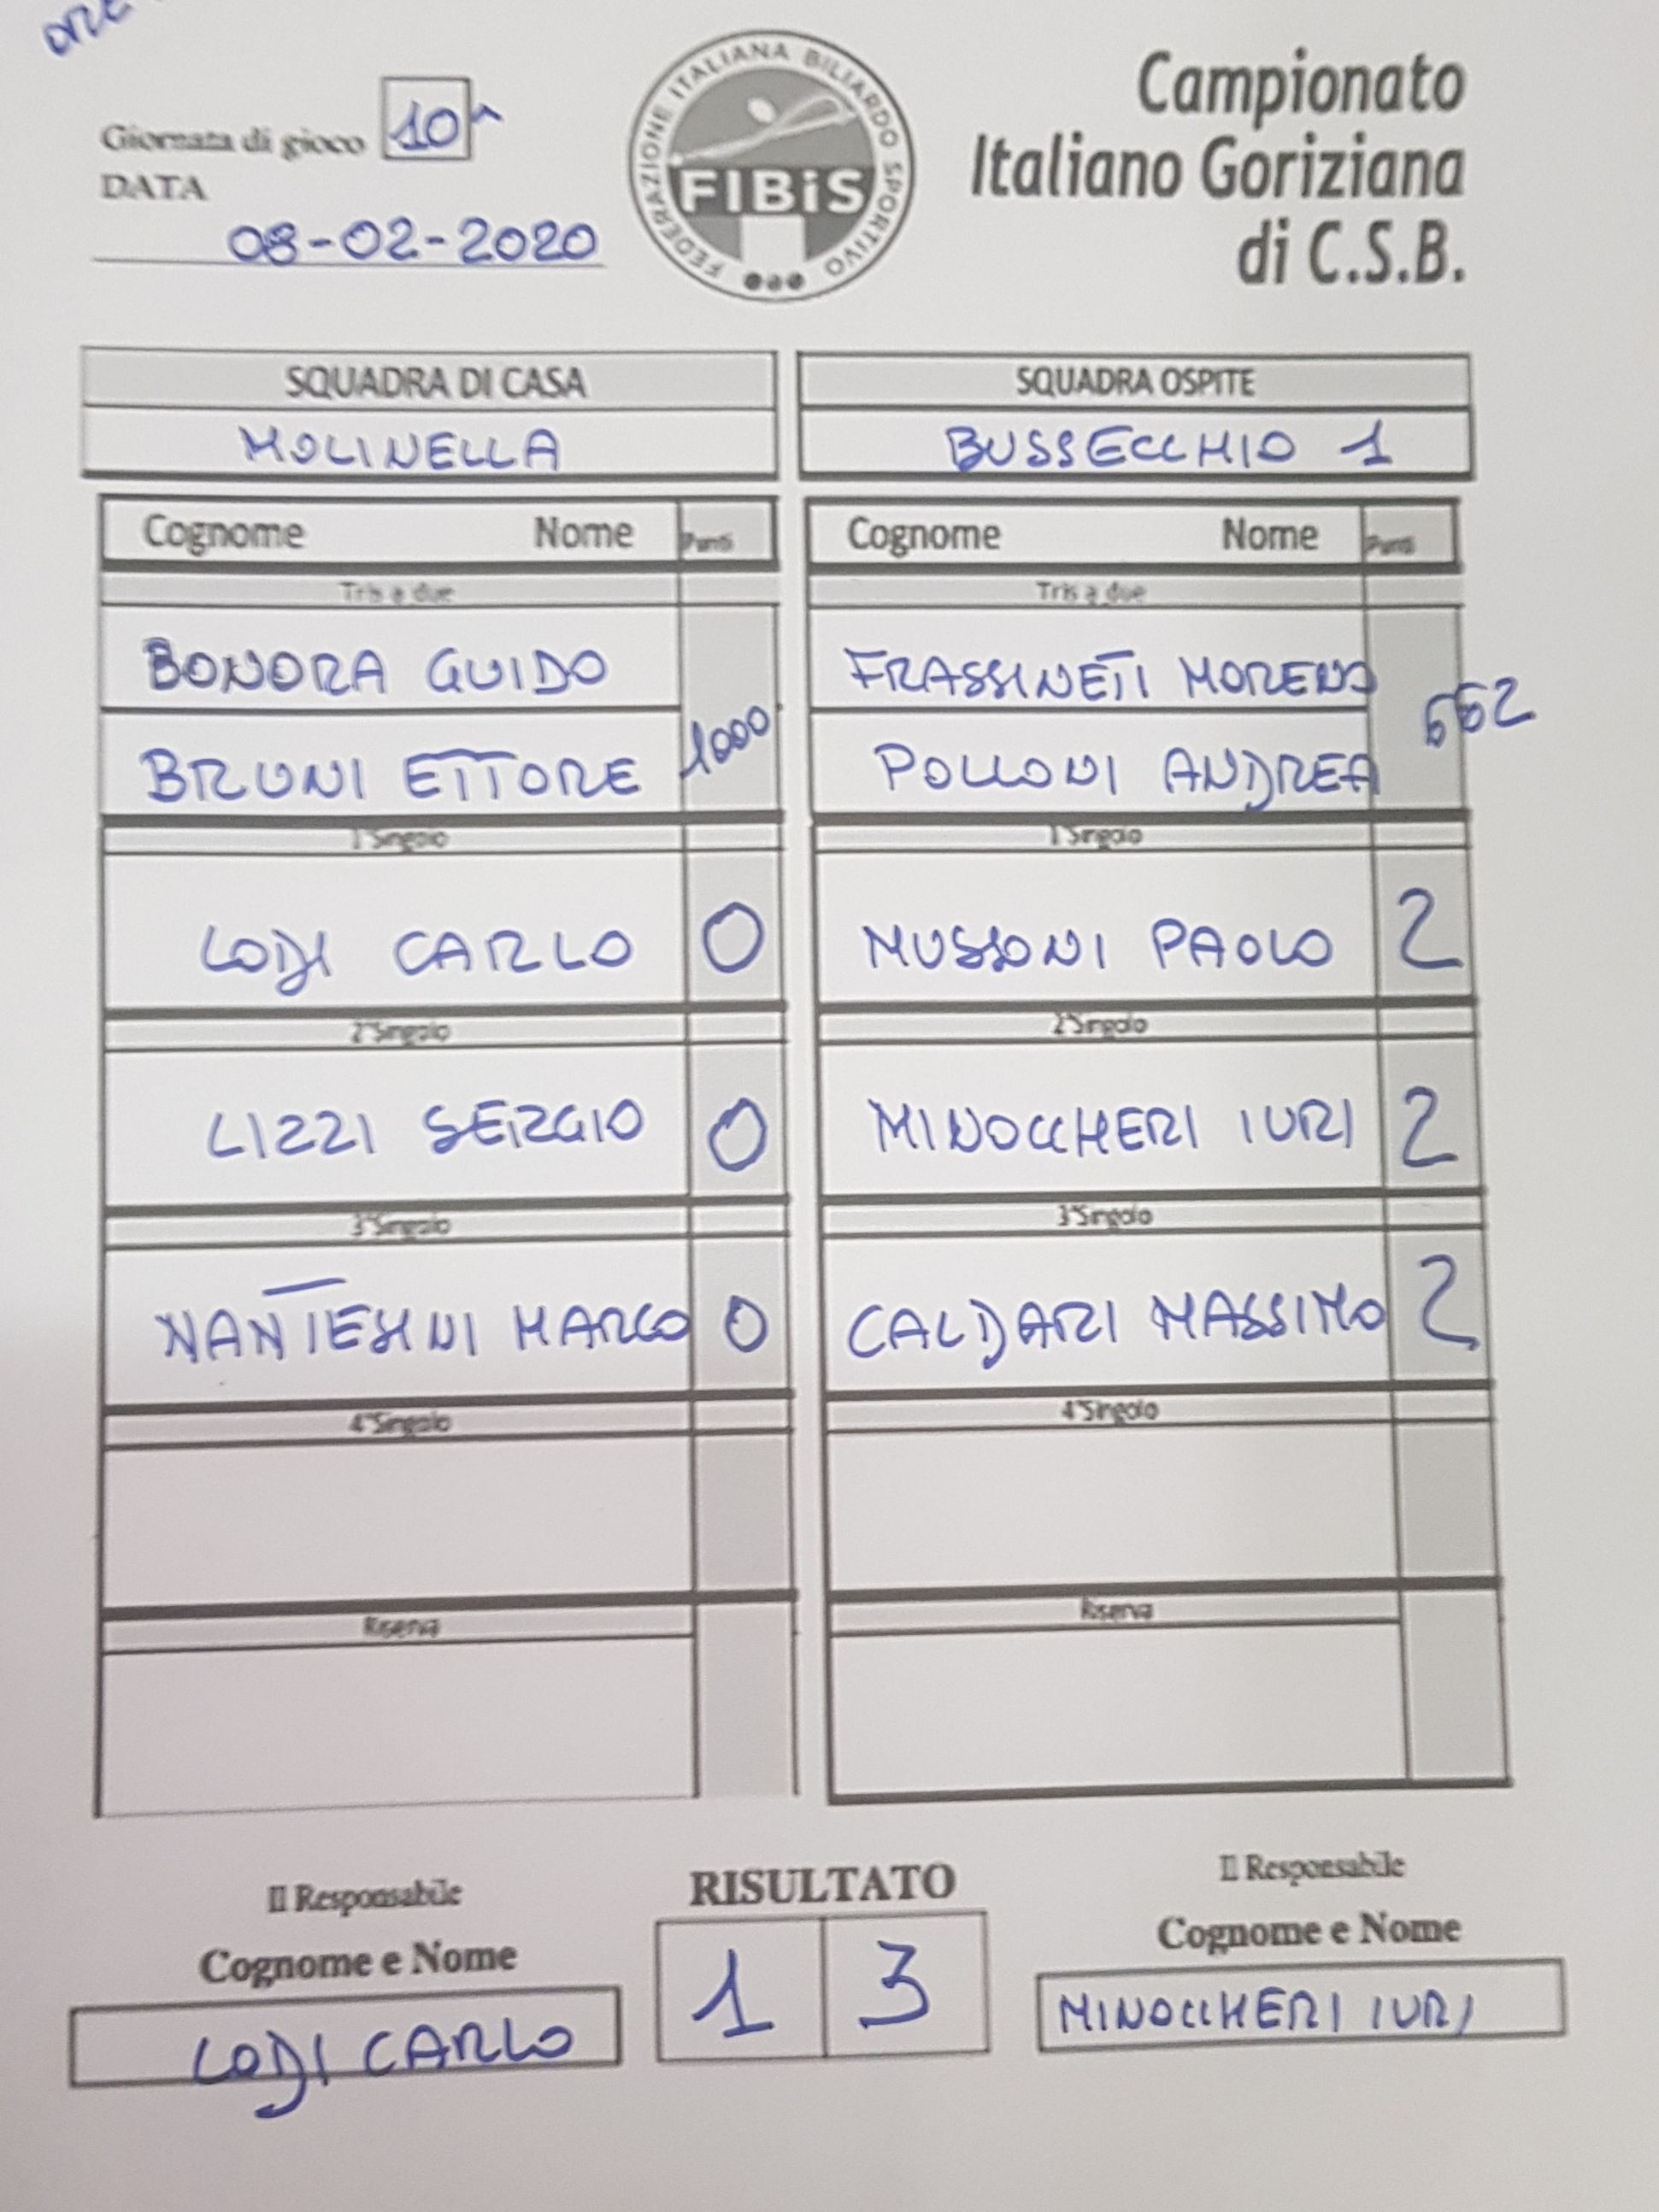 Giornata di gioco 10^
DATA
08-02-2020
FEDERAZIONE ITALIANA BILIARDO SPORTIVO
FIBiS
Campionato
Italiano Goriziana
di C.S.B.
SQUADRA DI CASA
MOLINELLA
SQUADRA OSPITE
BUSSECCHIO 1
Cognome Nome Punti
Tris a due
BONORA GUIDO
BRUNI ETTORE
1000
1°Singolo
LODI CARLO 0
2°Singolo
LIZZI SERGIO 0
3°Singolo
MARCO 0
4°Singolo
Riserva
Cognome Nome Punti
Tris a due
FRASSINETI MORENO
POLLONI ANDREA
662
1°Singolo
MUSSONI PAOLO 2
2°Singolo
MINOCCHERI IURI 2
3°Singolo
CALDARI MASSIMO 2
4°Singolo
Riserva
Il Responsabile
Cognome e Nome
LODI CARLO
RISULTATO
1 3
Il Responsabile
Cognome e Nome
MINOCCHERI IURI